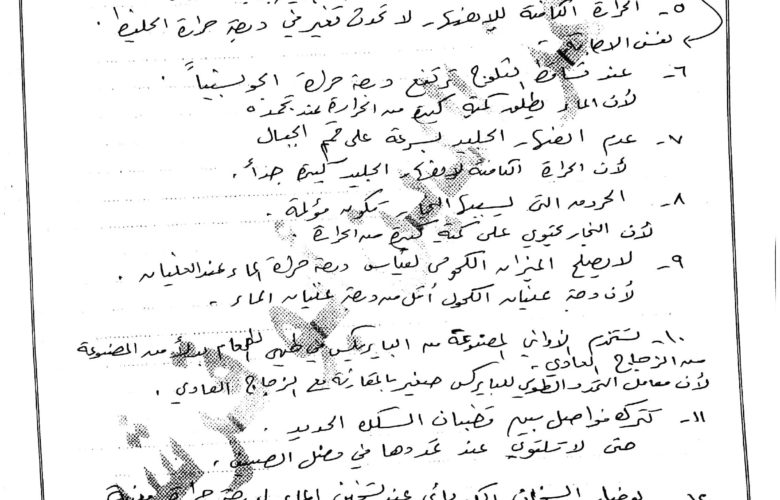 ٥- الحرارة الكامنة للإنصهار لا تحدث تغير في درجة حرارة الخليط.
نفس الاجابة
٦- عند تساقط الثلوج ترتفع درجة حرارة الجو نسبياً.
لأن الماء يطلق كمية كبيرة من الحرارة عند تجمده
٧- عدم انصهار الجليد بسرعة على قمم الجبال
لأن الحرارة الكامنة لانصهار الجليد كبيرة جداً.
٨- الحروق التي يسببها البخار تكون مؤلمة.
لأن البخار يحتوي على كمية كبيرة من الحرارة.
٩- لا يصلح الميزان الكحولي لقياس درجة حرارة الماء عند الغليان.
لأن درجة غليان الكحول أقل من درجة غليان الماء.
١٠- تستخدم الأواني المصنوعة من البايركس في طهي الطعام بدلاً من المصنوعة
من الزجاج العادي.
لأن معامل التمدد الطولي للبايركس صغير بالمقارنة مع الزجاج العادي.
١١- تترك فواصل بين قضبان السكك الحديد.
حتى لا تلتوي عند تمددها في فصل الصيف.